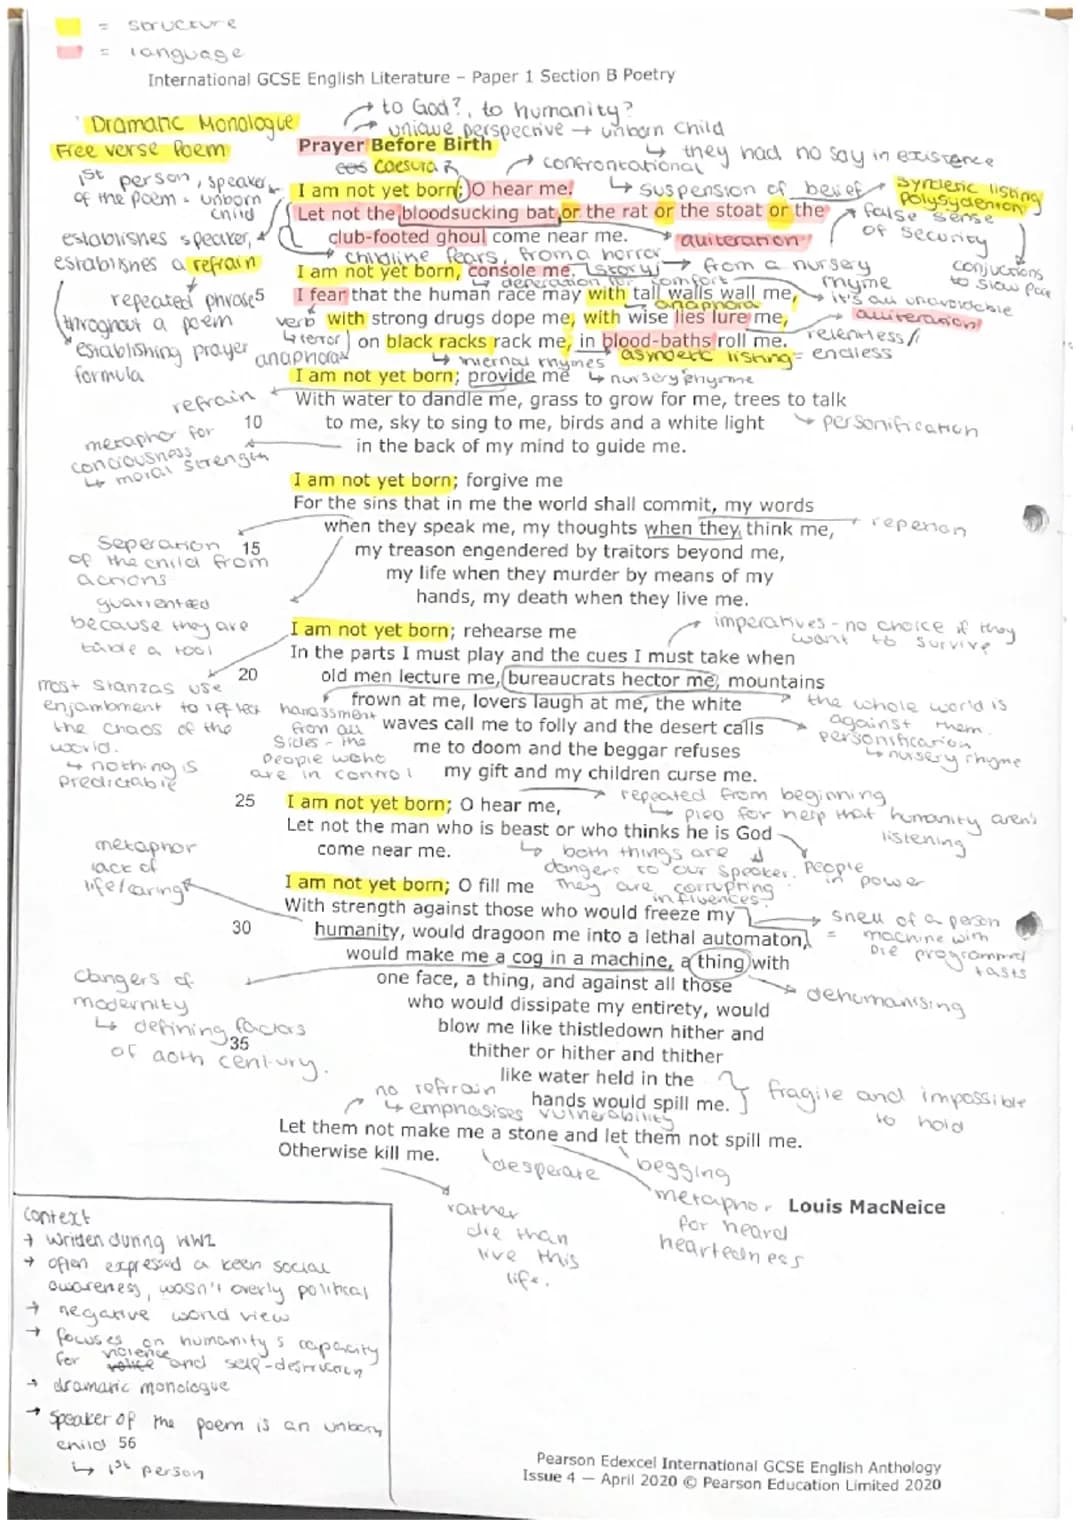 = structure
= language
International GCSE English Literature – Paper 1 Section B Poetry
→ to God?, to humanity?
Dramatic Monologue
→ unique perspective → unborn child
Free verse Poem
Prayer Before Birth
↳ they had no say in existence
Caesura
→ confrontational
1st person, speaker
of the poem = unborn
child
I am not yet born; O hear me.
↳ suspension of belief
Syndetic listing
polysydenton
Let not the bloodsucking bat or the rat or the stoat or the
false sense
of security
establishes speaker,
club-footed ghoul come near me.
alliteration
establishes a refrain
childlike fears, from a horror
(story)
→ from a nursery
rhyme
conjuctions
to slow pace
I am not yet born, console me.
comfort
repeated phrase
throghout a poem
5
I fear that the human race may with tall walls wall me,
→ it's an unavoidable
anaphora
verb
with strong drugs dope me, with wise lies lure me,
alliteration
↳ terror
relentless/
endless
establishing prayer
formula
anaphora
on black racks rack me, in blood-baths roll me.
↳ internal rhymes
asyndetic listing =
I am not yet born; provide me
↳ nursery rhyme
refrain
With water to dandle me, grass to grow for me, trees to talk
10
to me, sky to sing to me, birds and a white light
→ personification
metaphor for
conciousness
↳ moral strength
in the back of my mind to guide me.
I am not yet born; forgive me
For the sins that in me the world shall commit, my words
when they speak me, my thoughts when they think me,
Seperation
of the child from
actions
15
my treason engendered by traitors beyond me,
my life when they murder by means of my
guarrenteed
because they are
hands, my death when they live me.
I am not yet born; rehearse me
imperatives - no choice if they
want to survive
In the parts I must play and the cues I must take when
20
old men lecture me, bureaucrats hector me, mountains
most stanzas use
enjambment to reflect
the chaos of the
world.
↳ nothing is
predictable
frown at me, lovers laugh at me, the white
→ the whole world is
against them.
harassment
from all
sides - the
people who
are in control
waves call me to folly and the desert calls
personification
↳ nursery rhyme
me to doom and the beggar refuses
my gift and my children curse me.
→ repeated from beginning
25
I am not yet born; O hear me,
↳ plea for help that humanity aren't
listening
Let not the man who is beast or who thinks he is God
come near me.
↳ both things are
dangers to our speaker.
they are corrupting
influences.
People
in power
metaphor
lack of
life/caring
I am not yet born; O fill me
With strength against those who would freeze my
→ shell of a person
= machine with
pre programmed
tasts
30
humanity, would dragoon me into a lethal automaton,
would make me a cog in a machine, a thing with
dangers of
modernity
↳ defining factors
of 20th century.
one face, a thing, and against all those
→ dehumanising
who would dissipate my entirety, would
blow me like thistledown hither and
35
thither or hither and thither
like water held in the
hands would spill me.
fragile and impossible
to hold
no refrain
↳ emphasises vulnerability
Let them not make me a stone and let them not spill me.
Otherwise kill me.
desperate
begging
rather
die than
live this
life.
metaphor
for heard
heartedness
Louis MacNeice
Context
→ written during WW2
→ often expressed a keen social
awareness, wasn't overly political
→ negative world view
→ focuses on humanity's capacity
for violence and self-destruction
→ dramatic monologue
→ speaker of the poem is an unborn
child
↳ 1st person
56
Pearson Edexcel International GCSE English Anthology
Issue 4 — April 2020 © Pearson Education Limited 2020